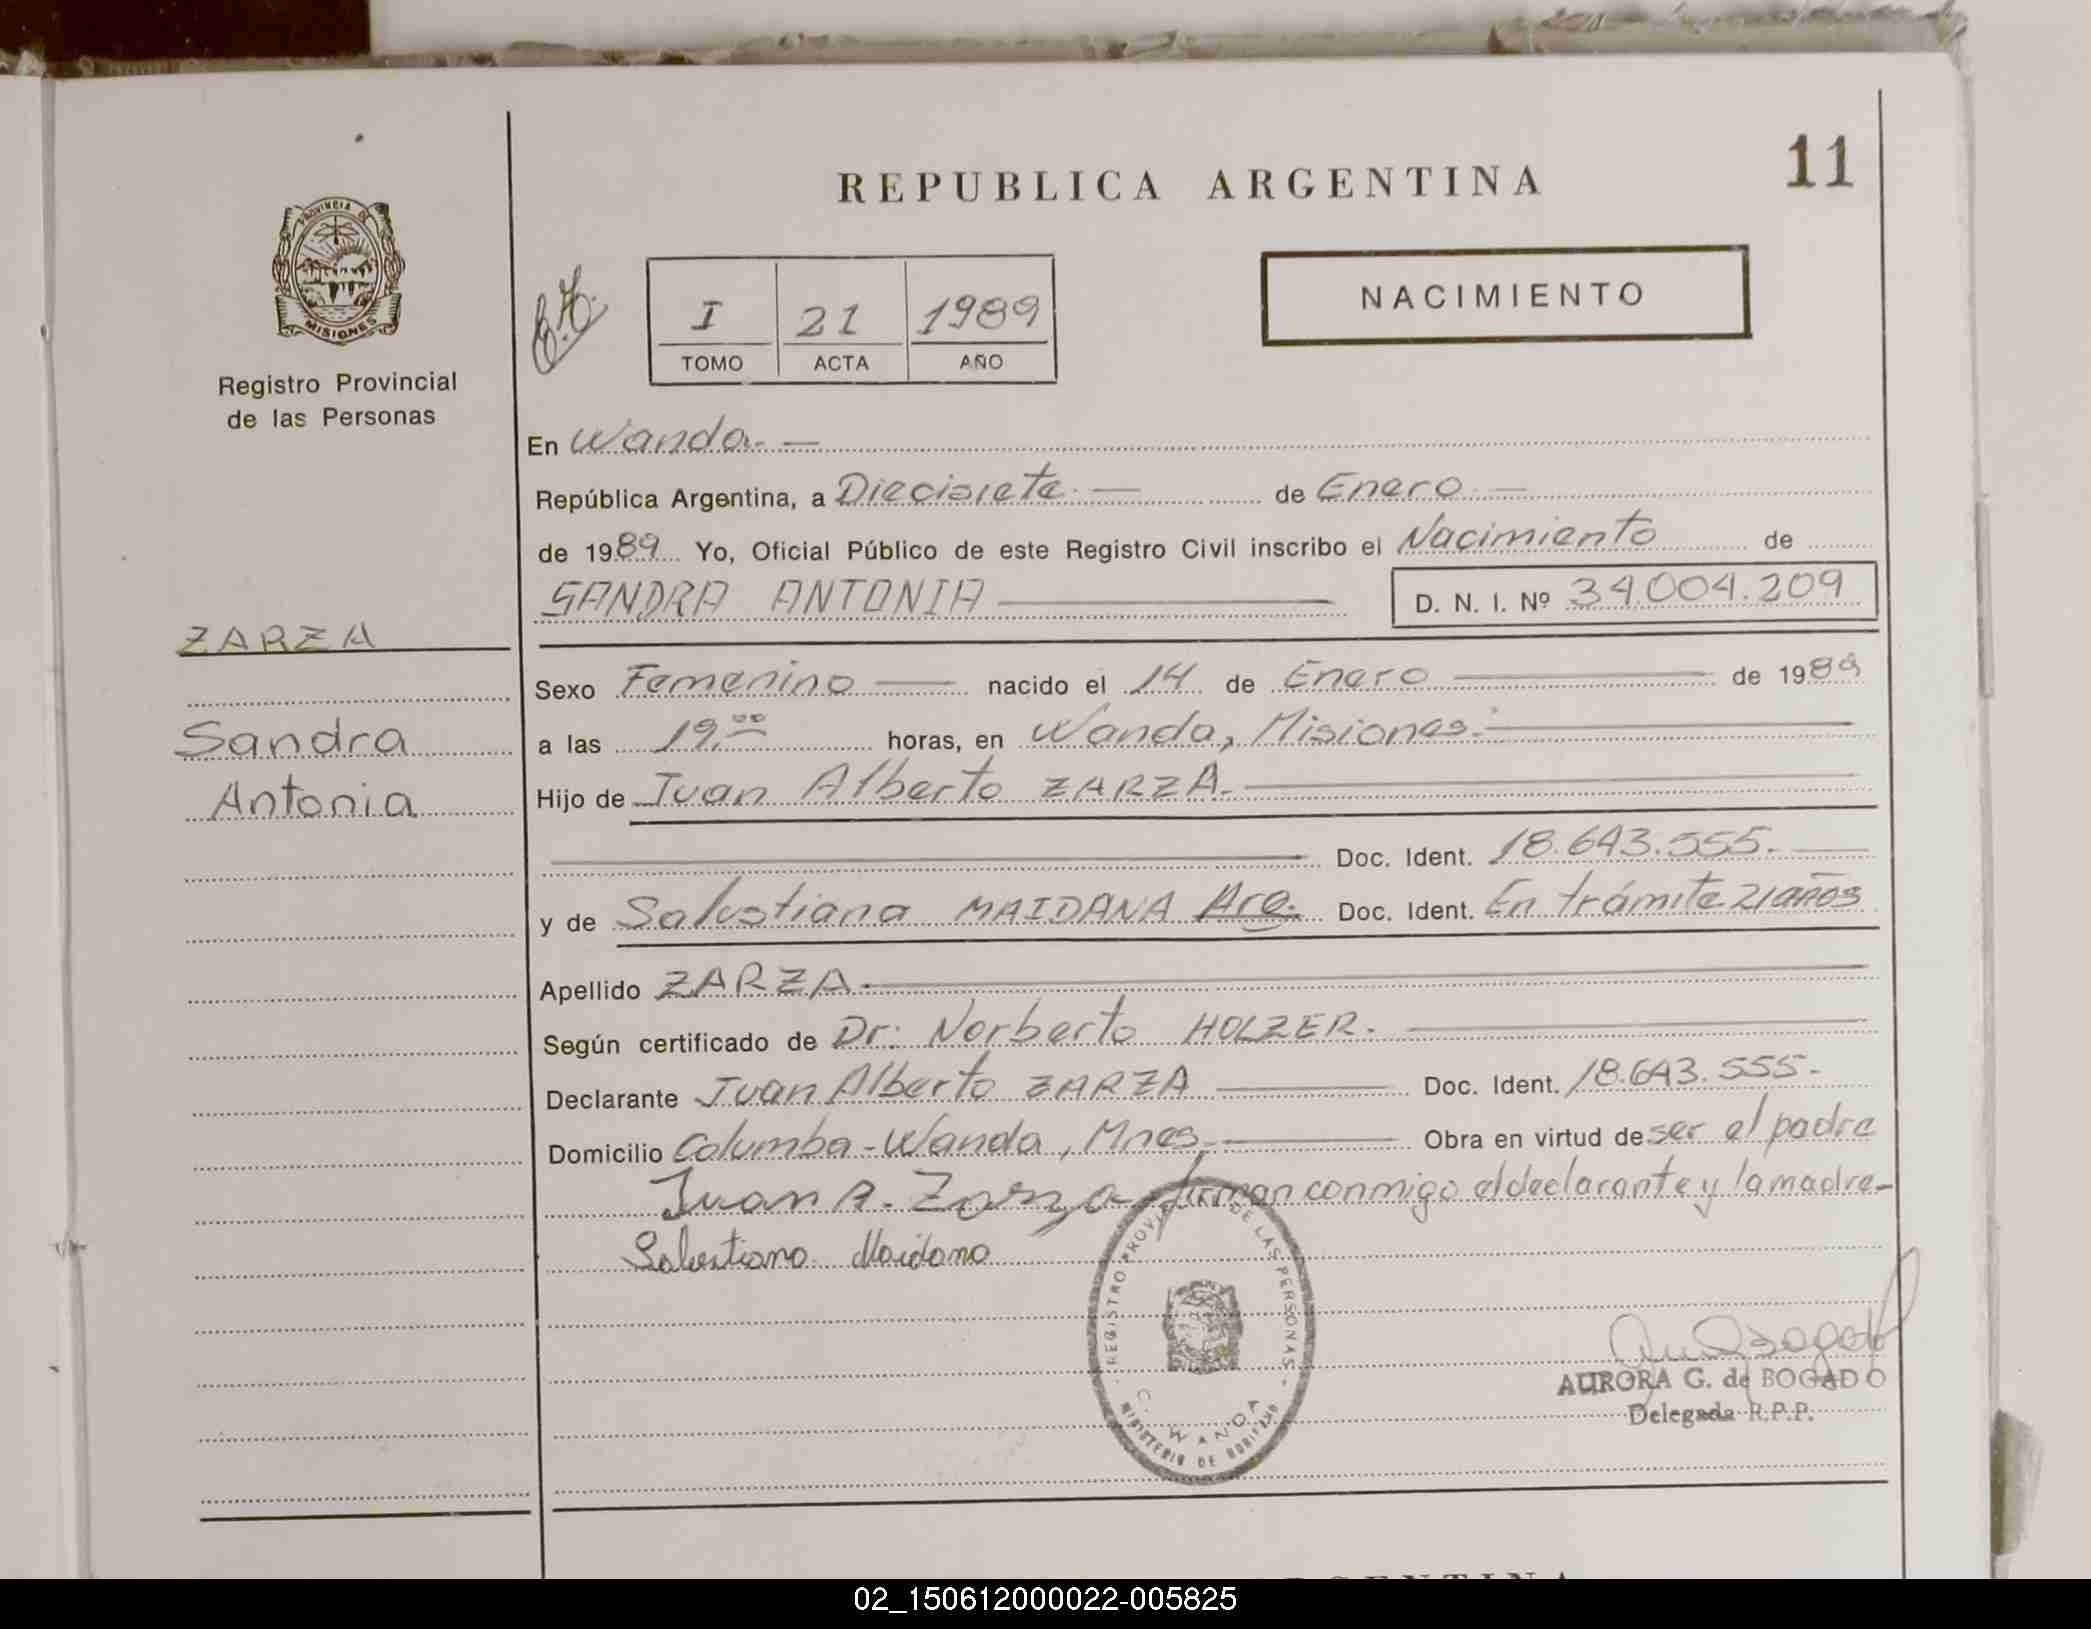 REPUBLICA ARGENTINA
11
PROVINCIA DE
MISIONES
Registro Provincial
de las Personas
I 21 1989
TOMO ACTA AÑO
NACIMIENTO
En Wanda.-
República Argentina, a Diecisiete.- de Enero.-
de 1989 Yo, Oficial Público de este Registro Civil inscribo el Nacimiento de
SANDRA ANTONIA
D. N. I. Nº 34.004.209
ZARZA
Sandra
Antonia
Sexo Femenino nacido el 14 de Enero de 1989
a las 19.00 horas, en Wanda, Misiones.-
Hijo de Juan Alberto ZARZA.-
Doc. Ident. 18.643.555.-
y de Salustiana MAIDANA Arg. Doc. Ident. En trámite 21 años
Apellido ZARZA.-
Según certificado de Dr: Norberto HOLZER.-
Declarante Juan Alberto ZARZA Doc. Ident. 18.643.555.-
Domicilio Columba-Wanda, Mnes.- Obra en virtud de ser el padre
Juan A. Zarza firman conmigo el declarante y la madre-
Salustiana Maidana
REGISTRO PROVINCIAL DE LAS PERSONAS
WANDA
MINISTERIO DE
AURORA G. de BOGADO
Delegada R.P.P.
ARGENTINA
02_150612000022-005825